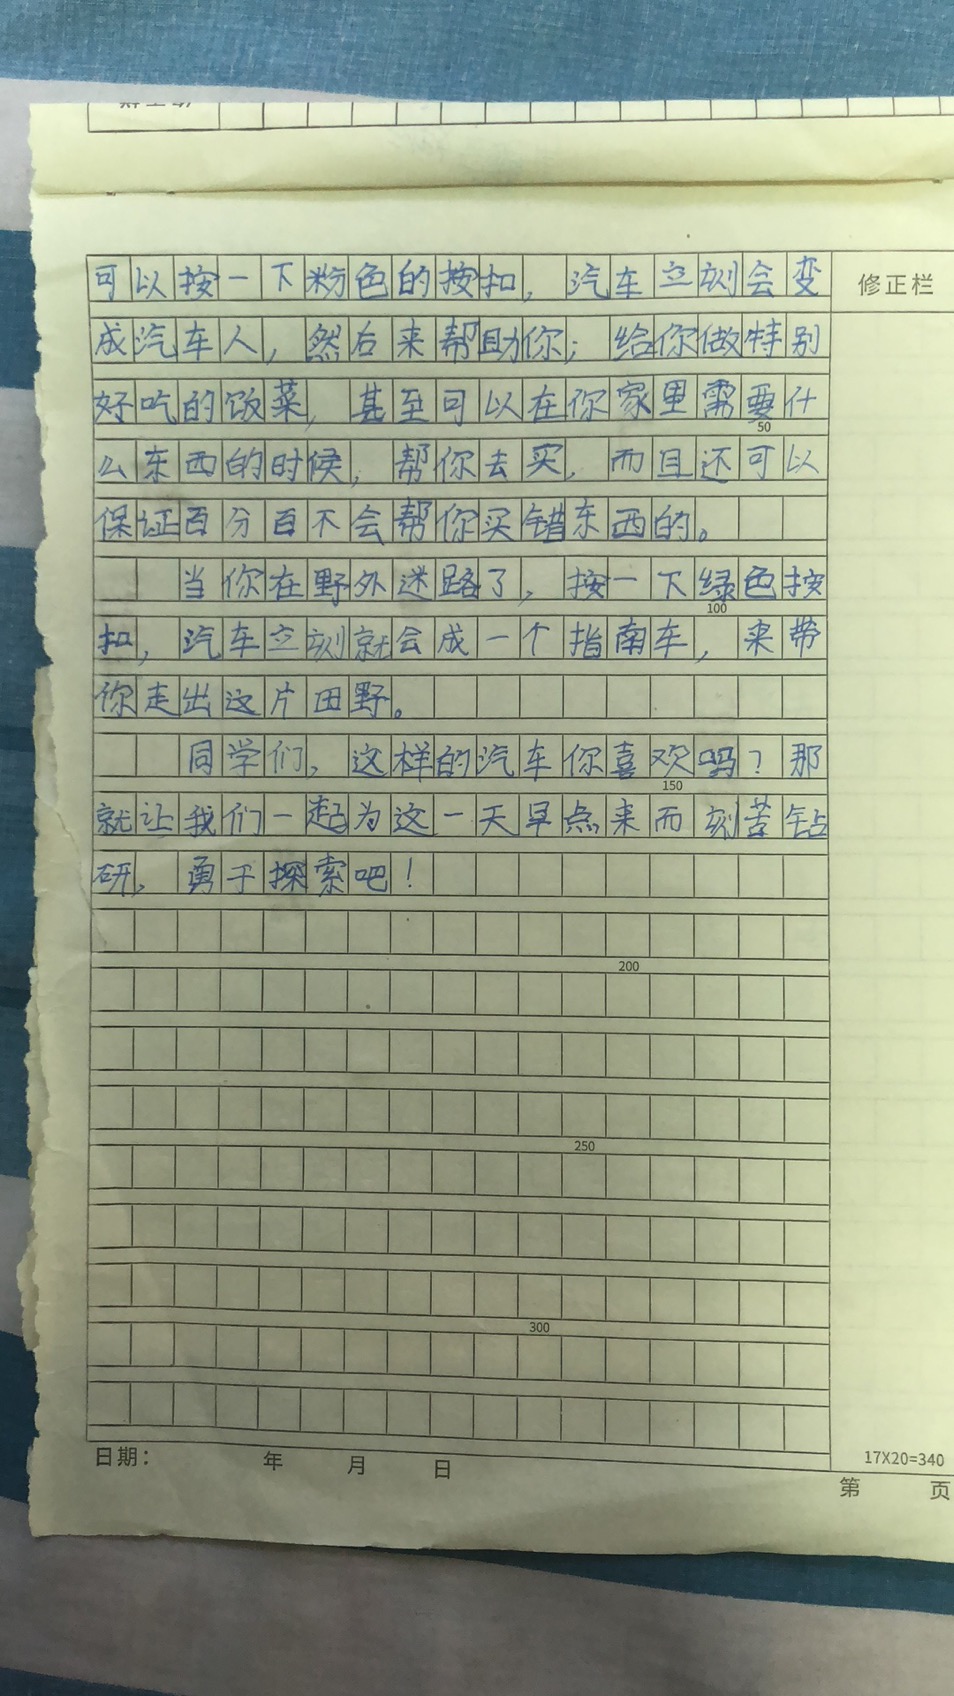 可以按一下粉色的按扣，汽车立刻会变
修正栏
成汽车人，然后来帮助你；给你做特别
好吃的饭菜，甚至可以在你家里需要什
50
么东西的时候，帮你去买，而且还可以
保证百分百不会帮你买错东西的。
当你在野外迷路了，按一下绿色按
100
扣，汽车立刻就会成一个指南车，来带
你走出这片田野。
同学们，这样的汽车你喜欢吗？那
150
就让我们一起为这一天早点来而刻苦钻
研，勇于探索吧！
200
250
300
日期： 年 月 日
17X20=340
第 页